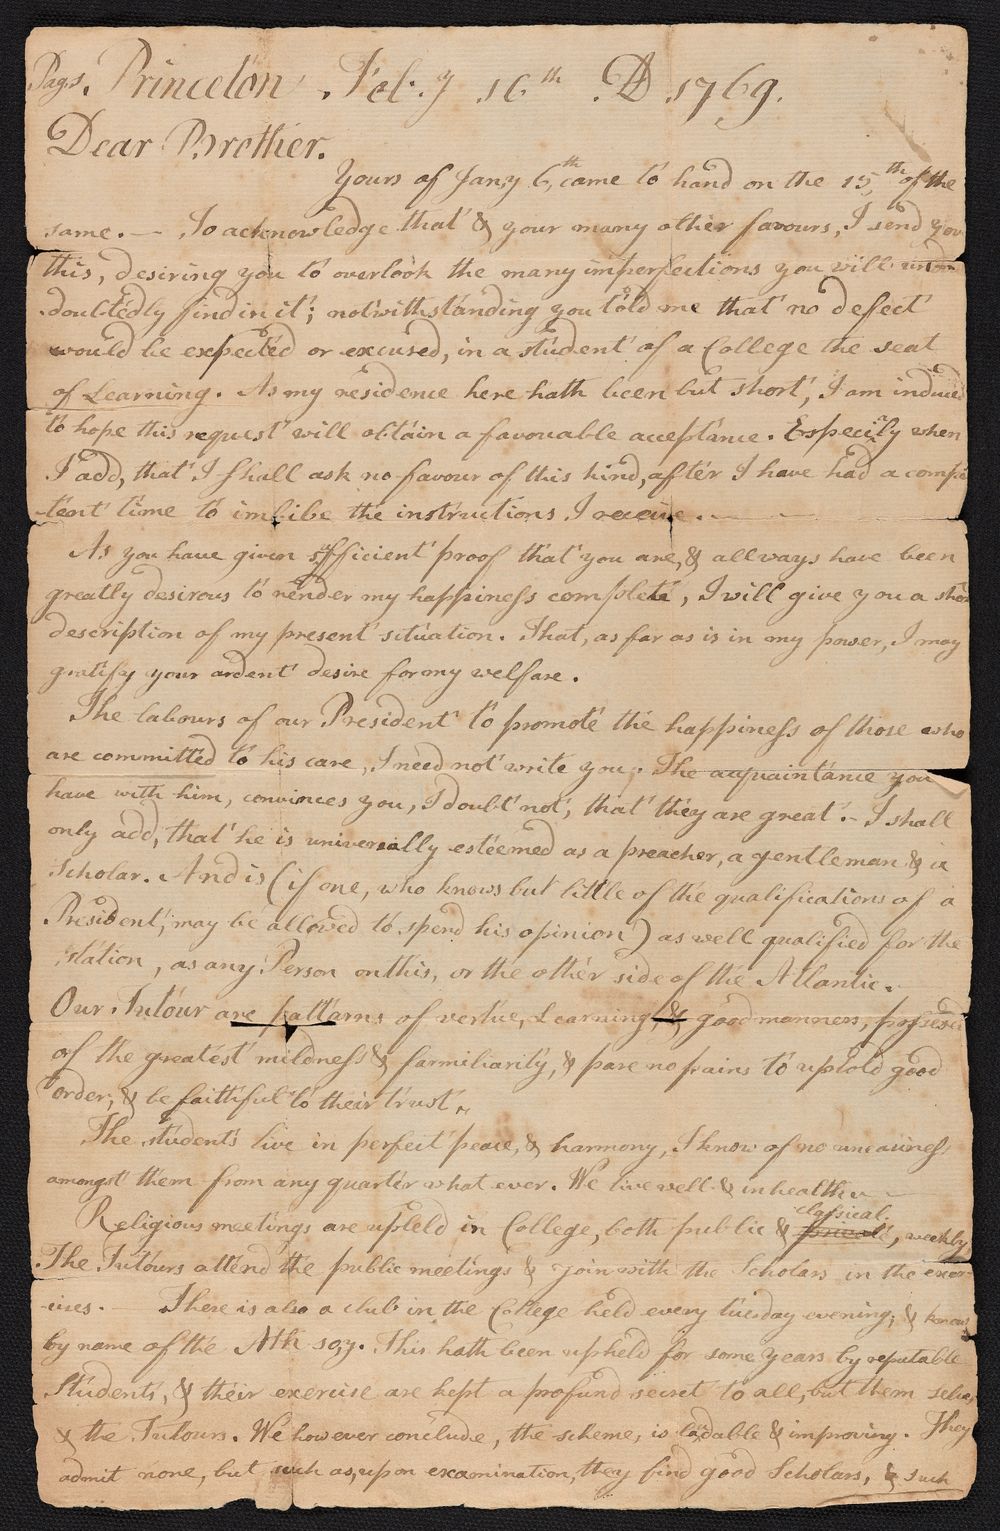 Pags. Princeton Feb.y 16th AD 1769.
Dear Brother.
Yours of Jany 6,th came to hand on the 15,th of the
same. — To acknowledge that & your many other favours, I send you
this, desiring you to overlook the many imperfections you will un
doubtedly find in it; notwithstanding you told me that no defect
would be expected or excused, in a student of a College the seat
of Learning. As my residence here hath been but short, I am induced
to hope this request will obtain a favouable acceptance. Especially when
I add, that I shall ask no favour of this kind, after I have had a compe
-tent time to imbibe the instructions I receive. —
As you have given sufficient proof that you are, & allways have been
greatly desirous to render my happiness complete, I will give you a short
description of my present situation. That, as far as is in my power, I may
gratify your ardent desire for my welfare.
The labours of our President to promote the happiness of those who
are committed to his care, I need not write you; The acquaintance you
have with him, convinces you, I doubt not, that they are great. - I shall
only add, that he is universally esteemed as a preacher, a gentleman & a
Scholar. And is (if one, who knows but little of the qualifications of a
President, may be allowed to spend his opinion) as well qualified for the
station, as any Person on this, or the other side of the Atlantic. -
Our Tutour are pattarns of vertue, Learning, & good manners, possessed
of the greatest mildness & farmiliarity, & pare no pains to uphold good
order, & be faithful to their trust.
The students live in perfect peace, & harmony, I know of no uneasiness
amongst them from any quarter what ever. We live well & in health.
Religious meetings are upheld in College, both public & classical, weekly
The Tutours attend the public meetings & join with the Scholars in the exer-
-cises. - There is also a club in the College held every tuesday evening, & known
by name of the . This hath been upheld for some years by reputable
Students, & their exercise are kept a profund secret to all, but them selves,
& the Tutours. We however conclude, the scheme, is laudable & improving. They
admit none, but such as, upon examination, they find good Scholars, & such